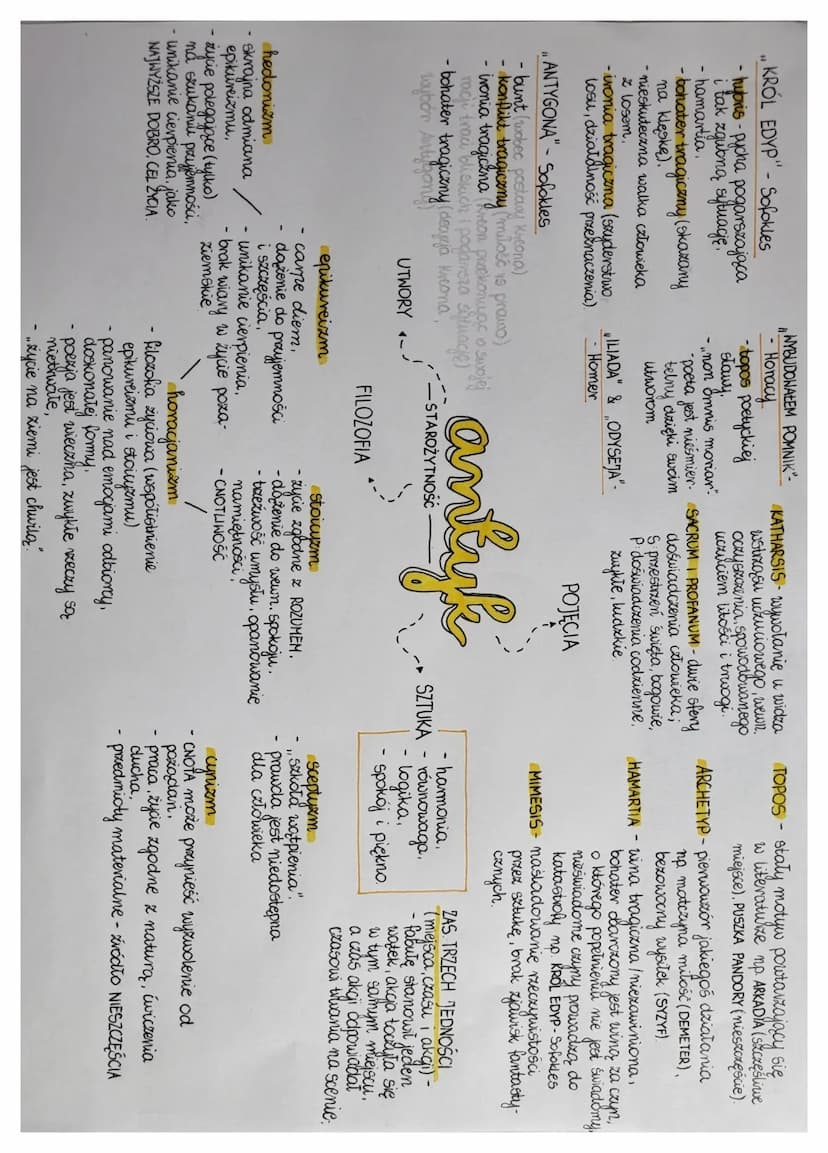 "KRÓL EDYP" - Sofokles
- hybris - pycha pogarszająca
i tak zgubną sytuację,
- hamartia,
- bohater tragiczny (skazany
na klęskę),
- nieskuteczna walka człowieka
z losem,
- ironia tragiczna (szyderstwo
losu, działalność przeznaczenia)
"ANTYGONA" - Sofokles
- bunt (wobec postawy Kreona)
- konflikt tragiczny (miłość vs prawo)
- ironia tragiczna (Kreon przekonując o swojej
racji traci bliskich, pogarsza sytuację)
- bohater tragiczny (decyzja Kreona,
wybór Antygony)
"WYBUDOWAŁEM POMNIK" -
- Horacy
- topos poetyckiej
sławy.
- "non omnis moriar"
- poeta jest nieśmier-
telny dzięki swoim
utworom
"ILIADA" & "ODYSEJA" -
- Homer
UTWORY
antyk
STAROŻYTNOŚĆ
POJĘCIA
KATHARSIS - wywołanie u widza
wstrząsu uczuciowego, wewn.
oczyszczenia, spowodowanego
uczuciem litości i trwogi.
SACRUM I PROFANUM - dwie sfery
doświadczenia człowieka;
S: przestrzeń święta, bogowie,
P: doświadczenia codzienne,
zwykłe, ludzkie.
TOPOS - stały motyw powtarzający się
w literaturze np. ARKADIA (szczęśliwe
miejsce), PUSZKA PANDORY (nieszczęście).
ARCHETYP - pierwowzór jakiegoś działania
np. matczyna miłość (DEMETER),
bezowocny wysiłek (SYZYF).
HAMARTIA - wina tragiczna / niezawiniona,
bohater obarczony jest winą za czyn,
o którego popełnieniu nie jest świadomy,
nieświadome czyny prowadzą do
katastrofy np. KRÓL EDYP - Sofokles
MIMESIS - naśladowanie rzeczywistości
przez sztukę, brak zjawisk fantasty-
cznych.
SZTUKA
- harmonia,
- równowaga,
- logika,
- spokój i piękno
ZAS. TRZECH JEDNOŚCI
(miejsca, czasu i akcji) -
- fabułę stanowił jeden
wątek, akcja toczyła się
w tym samym miejscu,
a czas akcji odpowiadał
czasowi trwania na scenie.
FILOZOFIA
hedonizm
- skrajna odmiana
epikureizmu,
- życie polegające (tylko)
na szukaniu przyjemności,
- unikanie cierpienia, jako
NAJWYŻSZE DOBRO, CEL ŻYCIA
epikureizm
- carpe diem,
- dążenie do przyjemności
i szczęścia,
- unikanie cierpienia,
- brak wiary w życie poza-
ziemskie
stoicyzm
- życie zgodne z ROZUMEM,
- dążenie do wewn. spokoju,
- trzeźwość umysłu, opanowanie
namiętności,
- CNOTLIWOŚĆ
horacjanizm
- filozofia życiowa (współistnienie
epikureizmu i stoicyzmu)
- panowanie nad emocjami odbiorcy,
doskonałej formy,
- poezja jest wieczna, zwykłe rzeczy są
nietrwałe,
- "życie na ziemi jest chwilą."
sceptyzm
- "szkoła wątpienia",
- prawda jest niedostępna
dla człowieka
cynizm
- CNOTA może przynieść wyzwolenie od
pożądań,
- praca, życie zgodne z naturą, ćwiczenia
ducha,
- przedmioty materialne - źródło NIESZCZĘŚCIA